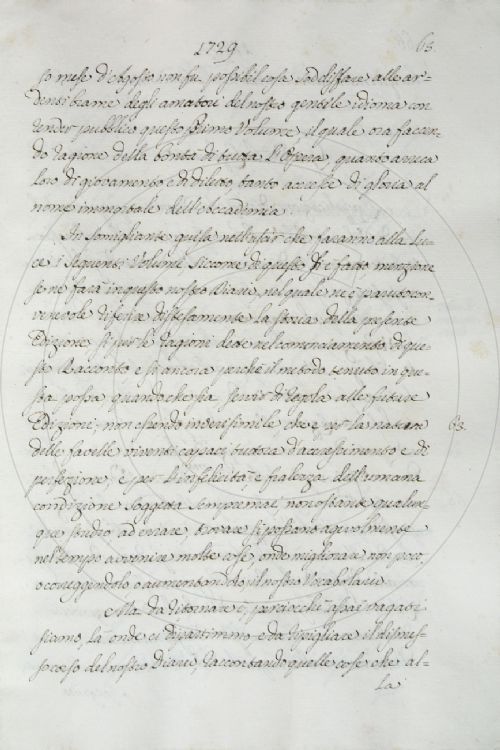 1729
63.
so mese d'Agosto non fu possibil cosa soddisfare alle ar-
denti brame degli amatori del nostro gentile idioma con
render pubblico questo Primo Volume, il quale ora faccen-
do ragione della bontà di tutta l'Opera, quanto arreca
loro di giovamento e di diletto, tanto accresce di gloria al
nome immortale dell'Accademia.
In somigliante guisa nell'uscir che faranno alla Lu-
ce i seguenti Volumi, siccome di questo si è fatto menzione
se ne farà in questo nostro Diario, nel quale ne è paruto con-
venevole riferir distesamente la storia della presente
Edizione sì per le ragioni dette nel cominciamento di que-
sto Racconto e sì ancora perchè il metodo tenuto in que-
sta possa quando che sia servir di regola alle future
Edizioni; non essendo inverisimile che e per la natura
63.
delle favelle viventi capaci tuttora d'accrescimento e di
perfezione, e per l'infelicità e fralezza dell'umana
condizione soggetta sempremai, non ostante qualun-
que studio ad errare, trovare si possano agevolmente
nel tempo avvenire molte cose, onde migliorare non poco,
o correggendolo o aumentandolo il nostro Vocabolario.
Ma da ritornare è, perciocchè assai vagati
siamo, là onde ci dipartimmo e da ripigliare il dismes-
so corso del nostro Diario, raccontando quelle cose che al-
la